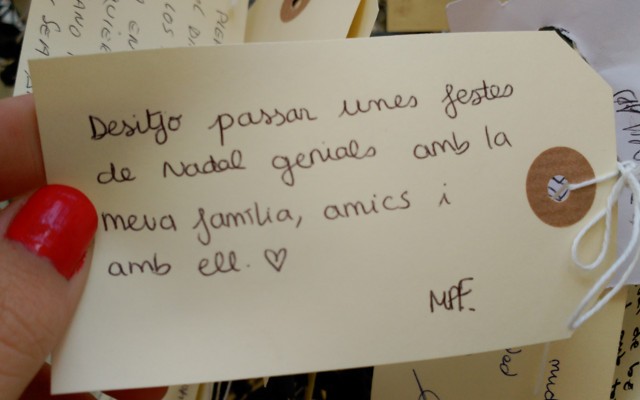 Desitjo passar unes festes
de Nadal genials amb la
meva família, amics i
amb ell. ♡
MPF.